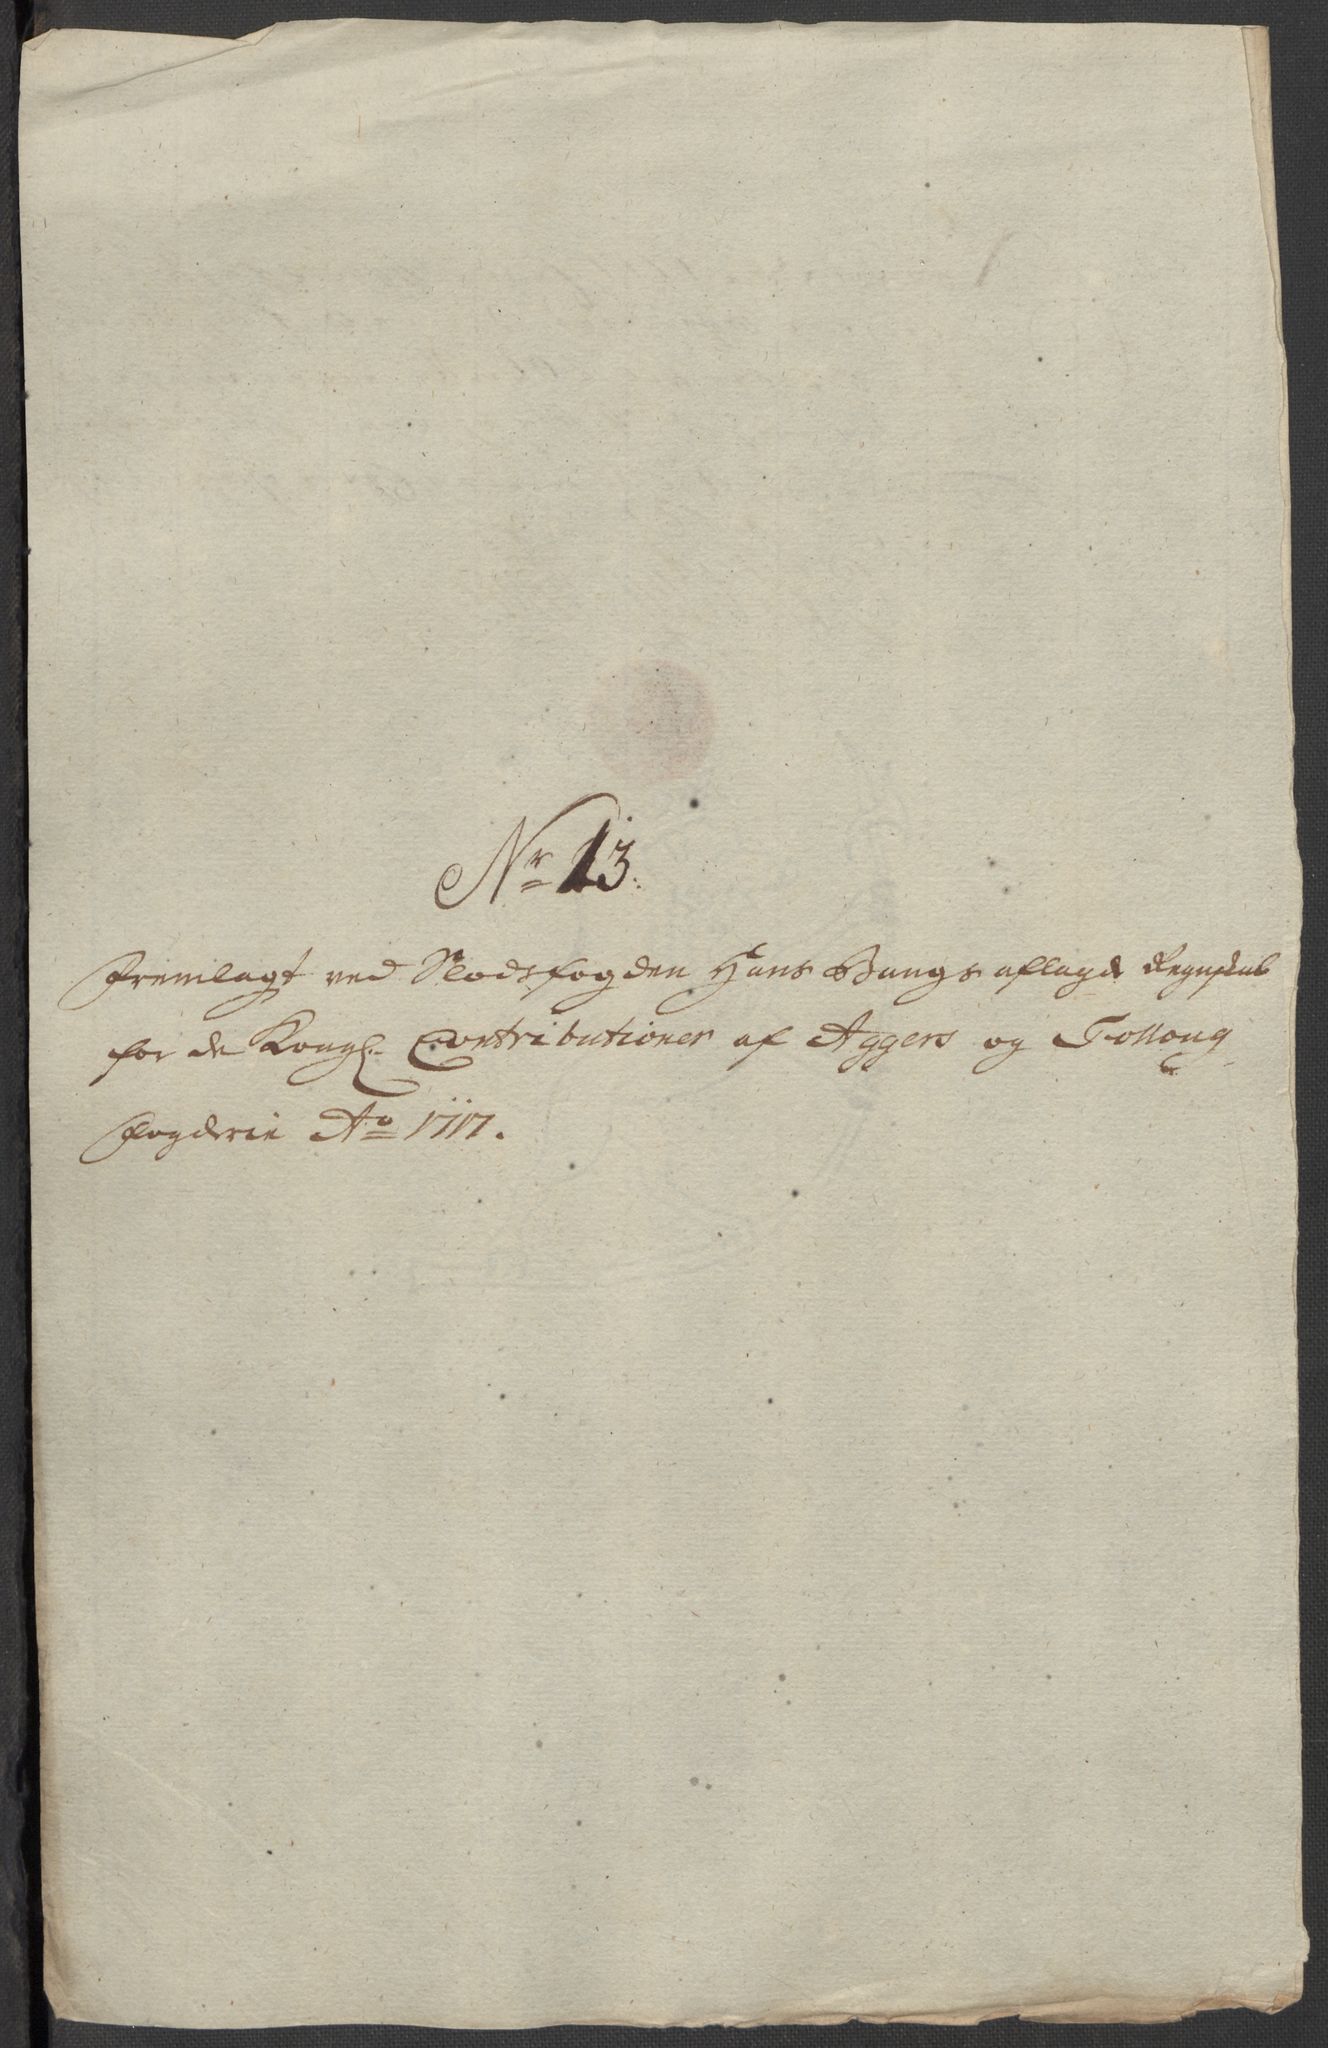 Nr 13.
Fremlagt ved Slodsfogden Hans Bangs aflagde Regnskab
for de Kongl. Contributioner af Aggers og Folloug
fogderie Ao 1717.